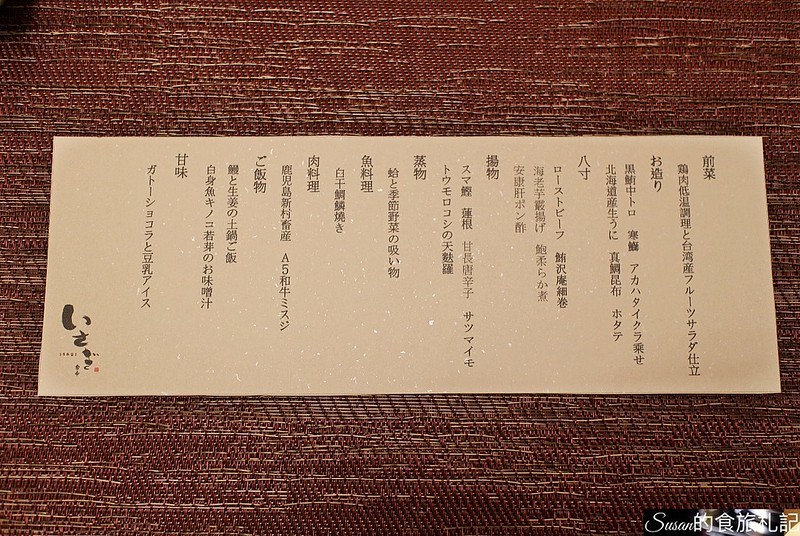 前菜
鶏肉低温調理と台湾産フルーツサラダ仕立
お造り
黒鮪中トロ 寒鰤 アカハタイクラ乗せ
北海道産生うに 真鯛昆布 ホタテ
八寸
ローストビーフ 鮪沢庵細巻
海老芋霰揚げ 鮑柔らか煮
安康肝ポン酢
揚物
スマ鰹 蓮根 甘長唐辛子 サツマイモ
トウモロコシの天麩羅
蒸物
蛤と季節野菜の吸い物
魚料理
白甘鯛鱗焼き
肉料理
鹿児島新村畜産 A5和牛ミスジ
ご飯物
鰻と生姜の土鍋ご飯
白身魚キノコ若芽のお味噌汁
甘味
ガトーショコラと豆乳アイス
いさぎ
ISAGI
Susan的食旅札記